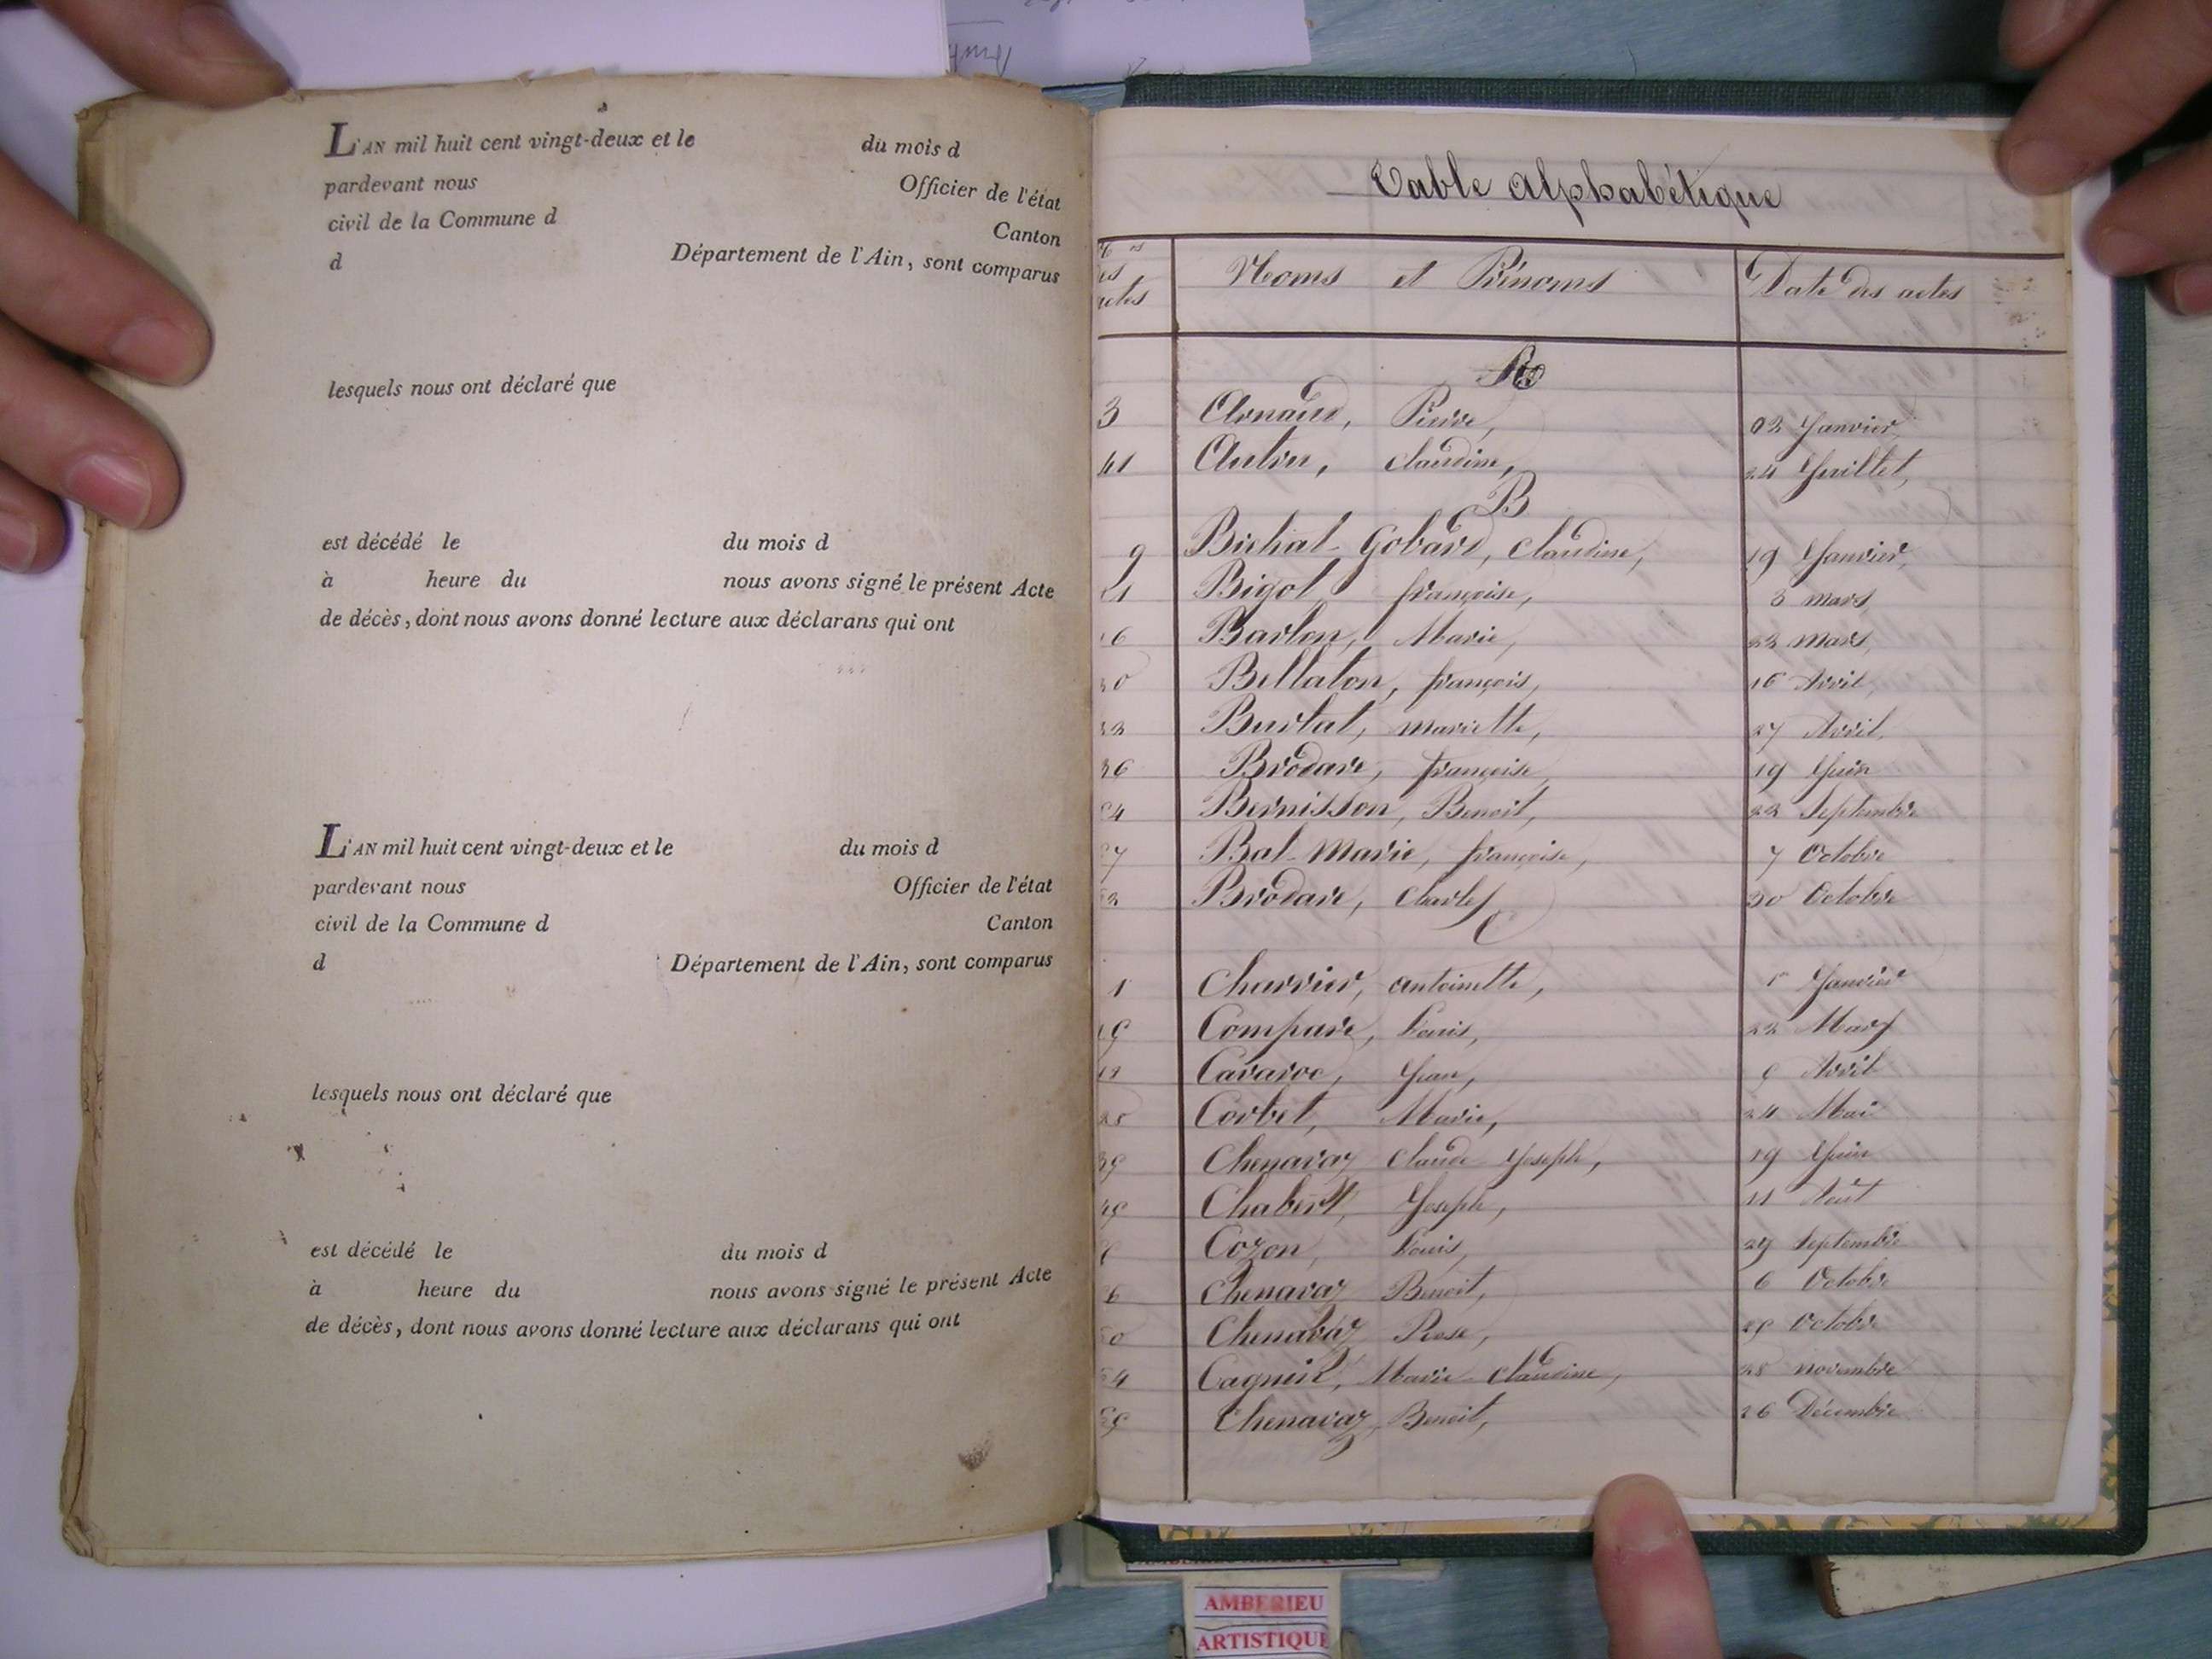 L'AN mil huit cent vingt-deux et le du mois d
pardevant nous Officier de l'état
civil de la Commune d Canton
d Département de l'Ain, sont comparus
lesquels nous ont déclaré que
est décédé le du mois d
à heure du nous avons signé le présent Acte
de décès, dont nous avons donné lecture aux déclarans qui ont
L'AN mil huit cent vingt-deux et le du mois d
pardevant nous Officier de l'état
civil de la Commune d Canton
d Département de l'Ain, sont comparus
lesquels nous ont déclaré que
est décédé le du mois d
à heure du nous avons signé le présent Acte
de décès, dont nous avons donné lecture aux déclarans qui ont
Table Alphabétique
Noms et Prénoms Date des actes
A
3 Arnaud, Pierre, 02 Janvier,
41 Antin, Claudine, 24 Juillet,
B
9 Bichat-Gobard, Claudine, 19 Janvier,
Bigot, françoise, 3 mars,
Barlon, Marie, 23 mars,
Bellaton, françois, 16 Avril,
Burtat, mariette, 27 Avril,
36 Brodare, françoise, 19 Juin
Bernisson, Benoit, 22 Septembre
Bal-Marie, françoise, 7 Octobre
Brodare, Charles, 30 Octobre
C
1 Charvier, Antoinette, 1er Janvier
Compare, Louis, 22 Mars
Cavaroc, Jean, 9 Avril
Corbet, Marie, 24 Mai
39 Chenavaz Claude Joseph, 19 Juin
49 Chabert, Joseph, 11 Août
Cozon, Louis, 29 Septembre
Chenavaz Benoit, 6 Octobre
Chenavaz Rose, 29 Octobre
Cagnin, Marie-Claudine, 28 novembre
Chenavaz, Benoit, 26 Décembre
AMBERIEU
ARTISTIQUE